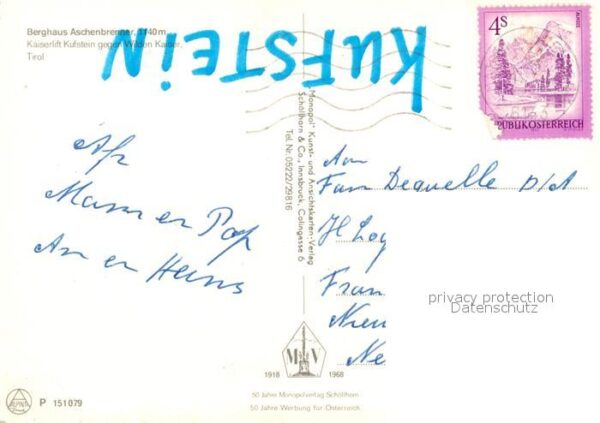 Berghaus Aschenbrenner, 1140 m
Kaiserlift Kufstein gegen Wilden Kaiser,
Tirol
KUFSTEiN
4S
ALMSEE
REPUBLIK ÖSTERREICH
Afz
Mam en Pap
An en Heins
"Monopol" Kunst- und Ansichtskarten-Verlag
Schöllhorn & Co., Innsbruck, Colingasse 6
Tel. Nr. 05222/29816
Aan
Fam
D/A
Fran
privacy protection
Datenschutz
Ne
M V
1918 1968
50 Jahre Monopolverlag Schöllhorn
50 Jahre Werbung für Österreich
ALPINA
P 151 079